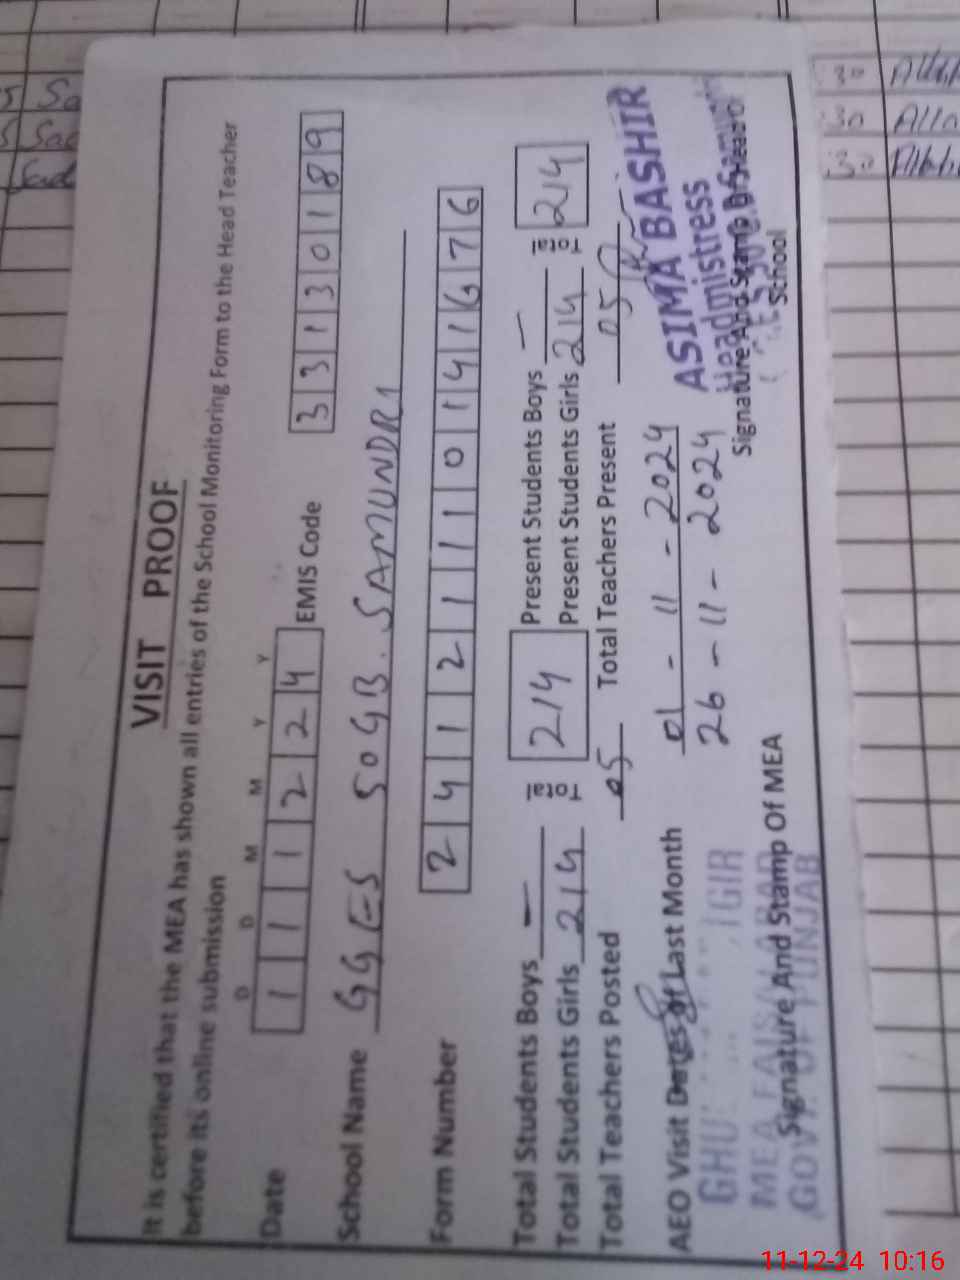 VISIT PROOF
It is certified that the MEA has shown all entries of the School Monitoring Form to the Head Teacher
before its online submission
D D M M Y Y
Date 1 1 1 2 2 4 EMIS Code 3 3 1 3 3 0 1 8 9
School Name GGES 50GB. SAMUNDRI
Form Number 2 4 1 2 1 1 1 0 1 4 1 6 7 6
Total Students Boys — Total 214 Present Students Boys — Total 214
Total Students Girls 214 Present Students Girls 214
Total Teachers Posted 05 Total Teachers Present 05
AEO Visit Dates of Last Month 01 - 11 - 2024
26 - 11 - 2024
ASIMA BASHIR
Headmistress
Signature And Stamp Of Head Of
School
MEA FAISALABAD
Signature And Stamp Of MEA
GOVT. OF PUNJAB
30
30
30
11-12-24 10:16